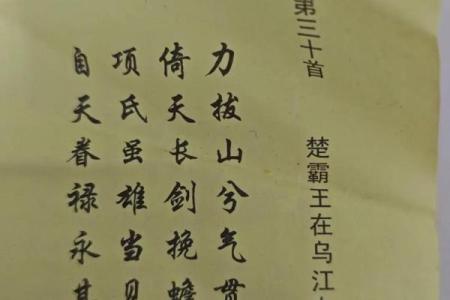 第三十首
楚霸王在乌江
力拔山兮气贯
倚天长剑挽蟾
项氏虽雄当见
自天眷禄永其